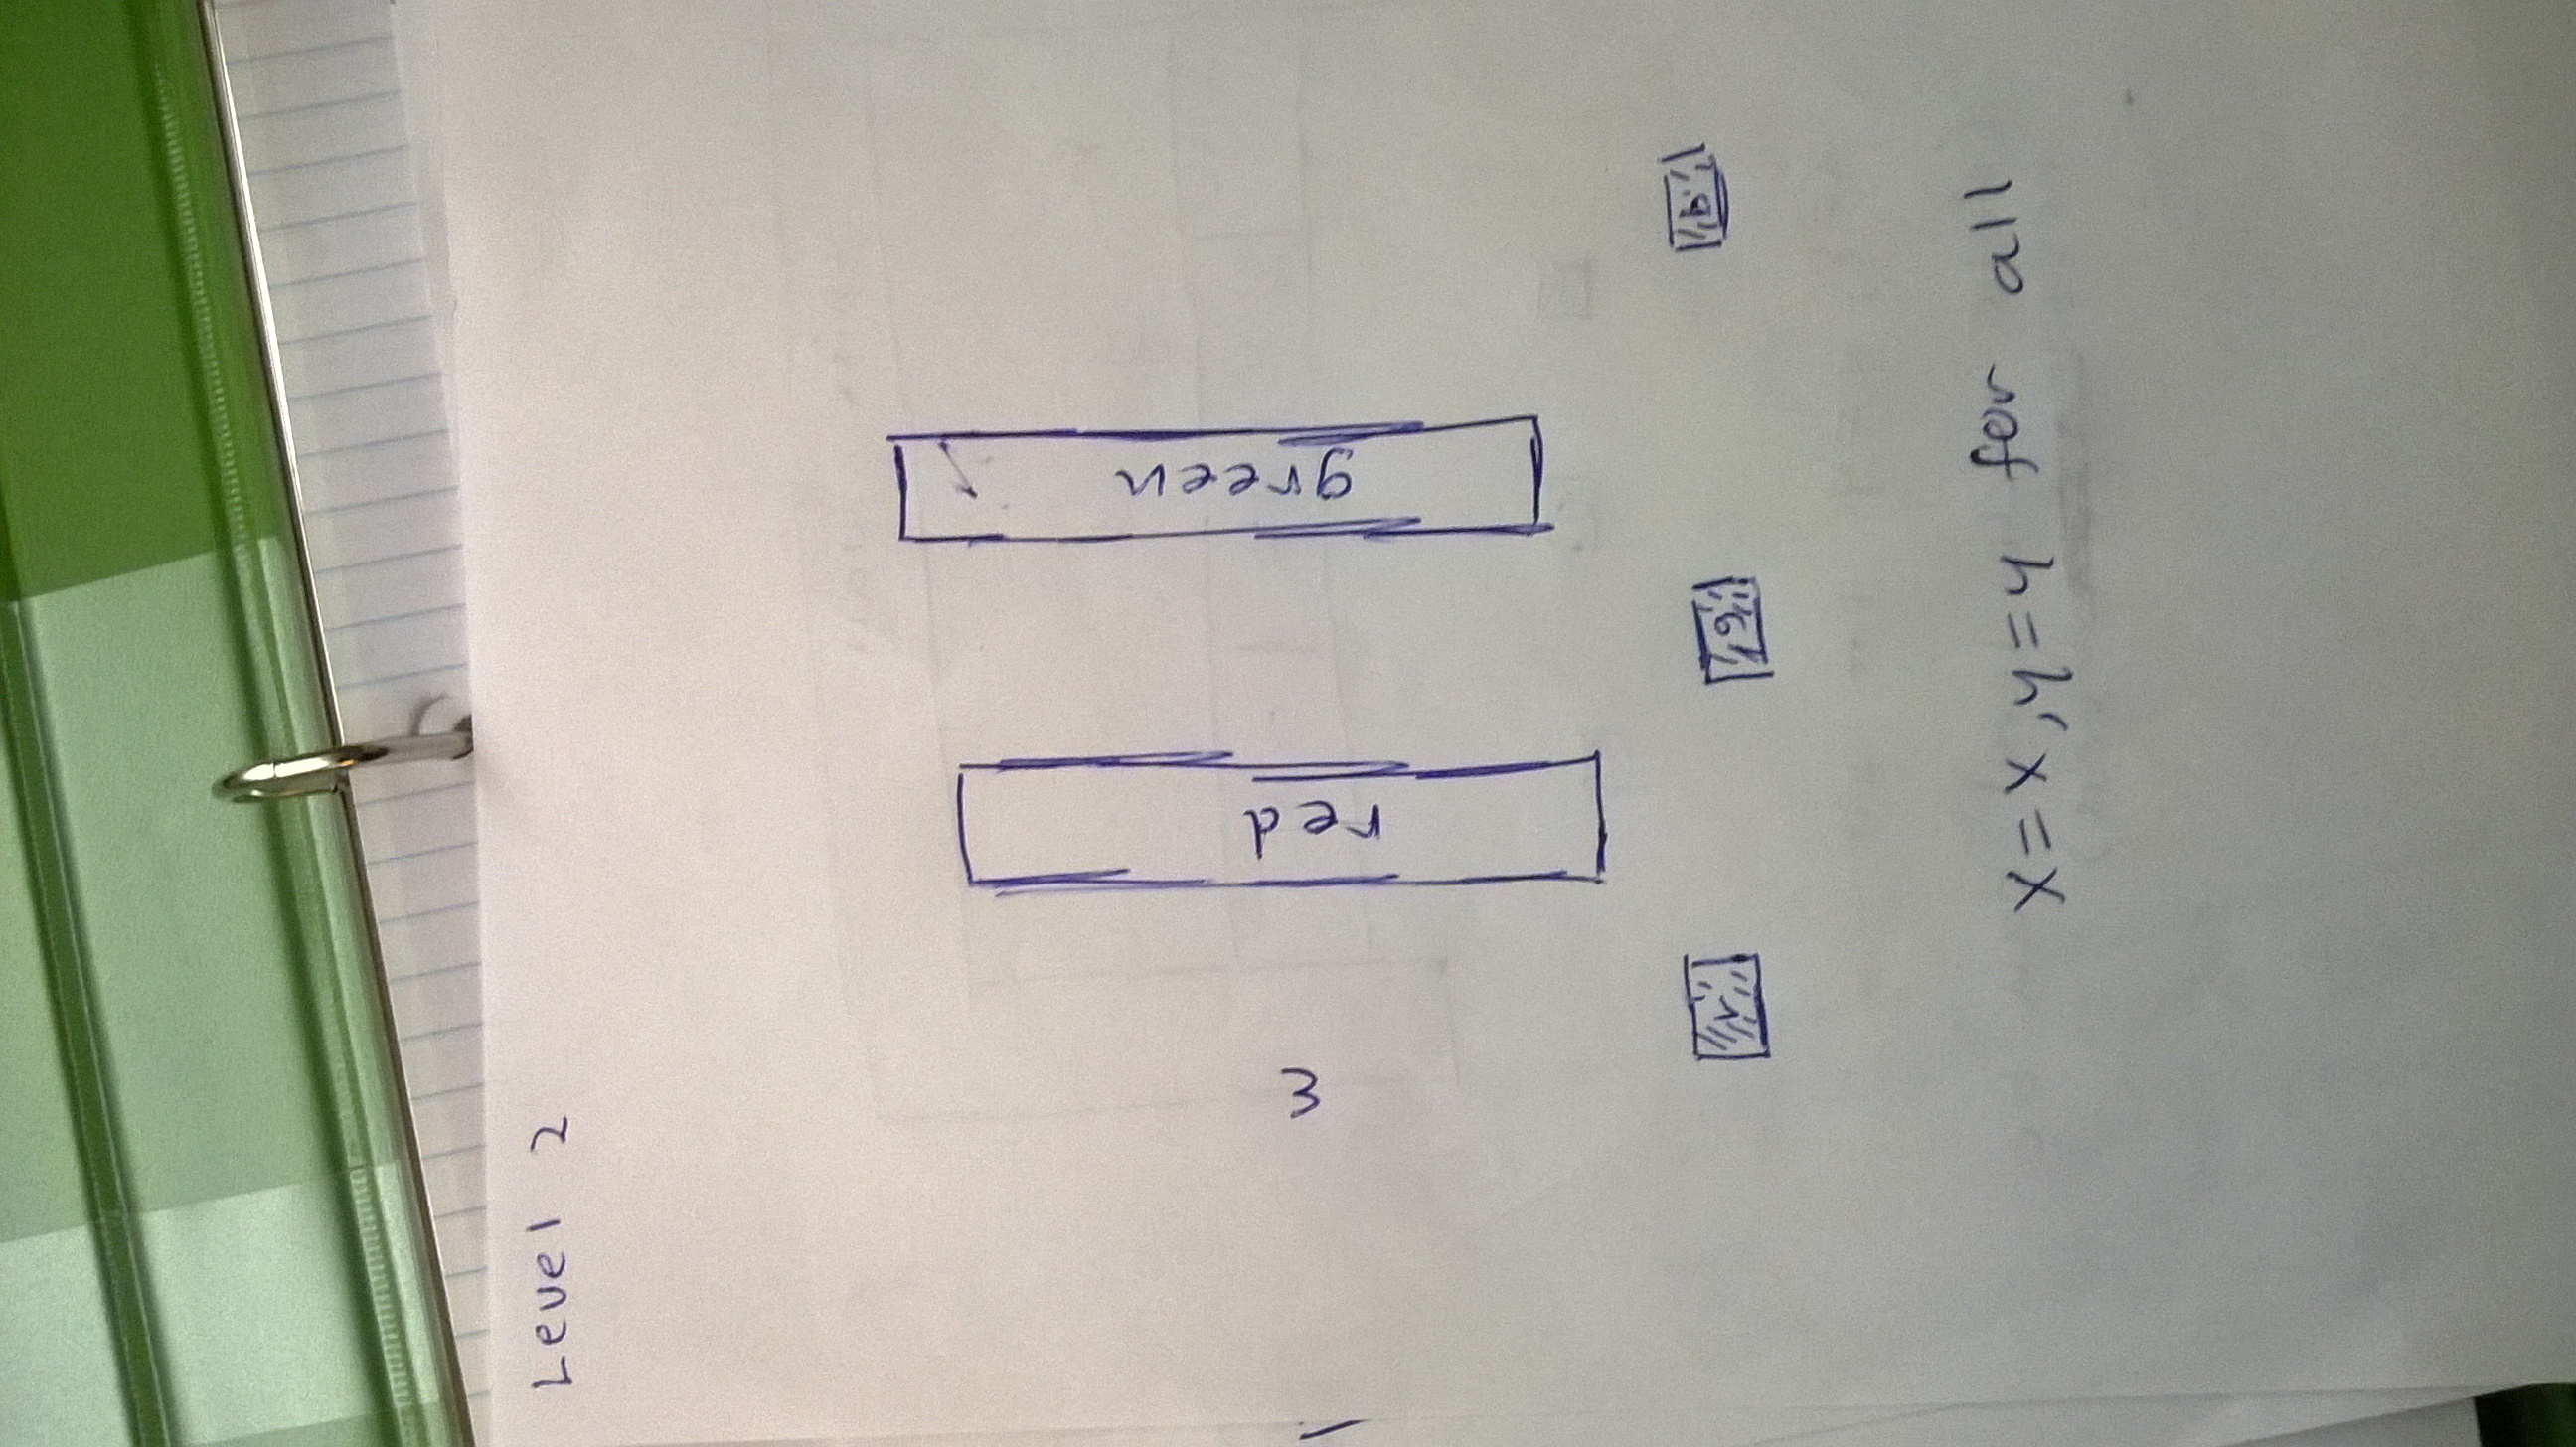 Level 2
3
red
green
r
g
b
x=x,y=y for all